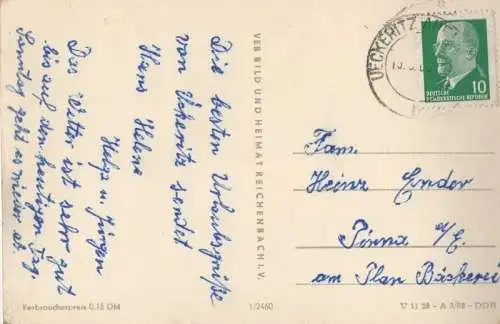 Die besten Urlaubsgrüße
von Ückeritz sendet
Hans Helms
Helga u. Jürgen
Das Wetter ist sehr gut
bis auf den heutigen Tag.
Samstag geht es wieder ab.
VEB BILD UND HEIMAT REICHENBACH I. V.
Verbraucherpreis 0,15 DM
1/2460
UECKERITZ
10
DEUTSCHE
DEMOKRATISCHE REPUBLIK
Fam.
Heinz Ender
Pirna /E.
am Plan Bäckerei
V 11 28 - A 3/88 - DDR